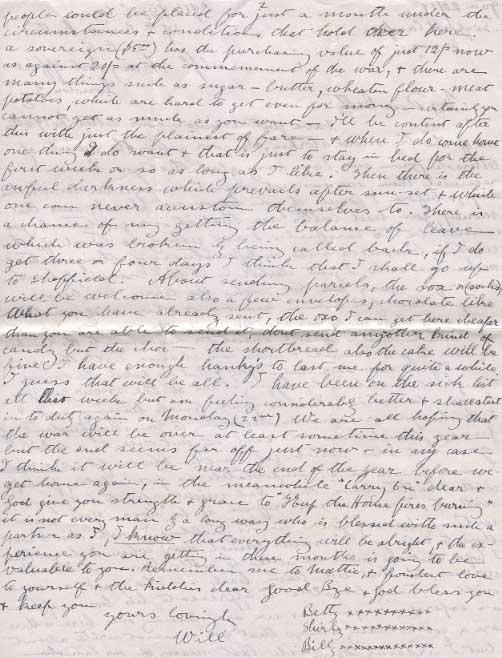 2
people could be placed for just a month under the
circumstances & conditions that hold over here.
a sovereign ($5.00) has the purchasing value of just 12/- now
as against 20/- at the commencement of the war, & there are
many things such as sugar - butter, wheaten flour - meat
potatoes, which are hard to get even for money -
cannot get as much as you want - I'll be content after
this with just the plainest of fare - & when I do come home
one thing I do want & that is just to stay in bed for the
first week or so as long as I like. Then there is the
awful darkness which prevails after sun-set & which
one can never accustom themselves to. There is
a chance of my getting the balance of leave
which was broken by being called back, if I do
get three or four days I think that I shall go up
to Sheffield. About sending parcels, the sox
will be welcome also a few envelopes, chocolate like
what you have already sent, the oxo I can get here cheaper
than you are able to send it, dont send any other kind of
candy but the choc - the shortbread also the cake will be
fine. I have enough hankys to last me for quite a while
I guess that will be all. I have been on the sick list
all this week but am feeling considerably better & shall start
in to duty again on Monday (22nd) We are all hoping that
the war will be over at least sometime this year
but the end seems far off just now & in any case
I think it will be near the end of the year before we
get home again, in the meanwhile "Carry On" dear &
God give you strength & grace to "Keep the Home fires burning"
it is not every man by a long way who is blessed with such a
partner as I, I know that everything will be alright, & the ex-
perience you are getting in these months is going to be
valuable to you. Remember me to Mattie, & fondest love
to yourself & the kiddies dear Good-Bye & God bless you
& keep you
yours lovingly
Will
Betty xxxxxxxxxx
Shirly xxxxxxxxxx
Billy xxxxxxxxxxx